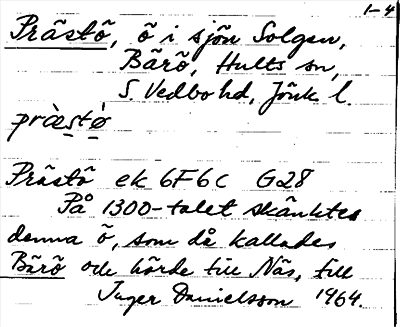 1-4
Prästö, ö i sjön Solgen,
Bärö, Hults sn,
S. Vedbo hd, Jönk. l.
præ̀stø̀
Prästö ek 6F6C G28
På 1300-talet skänktes
denna ö, som då kallades
Bärö och hörde till Näs, till
Inger Danielsson 1964.